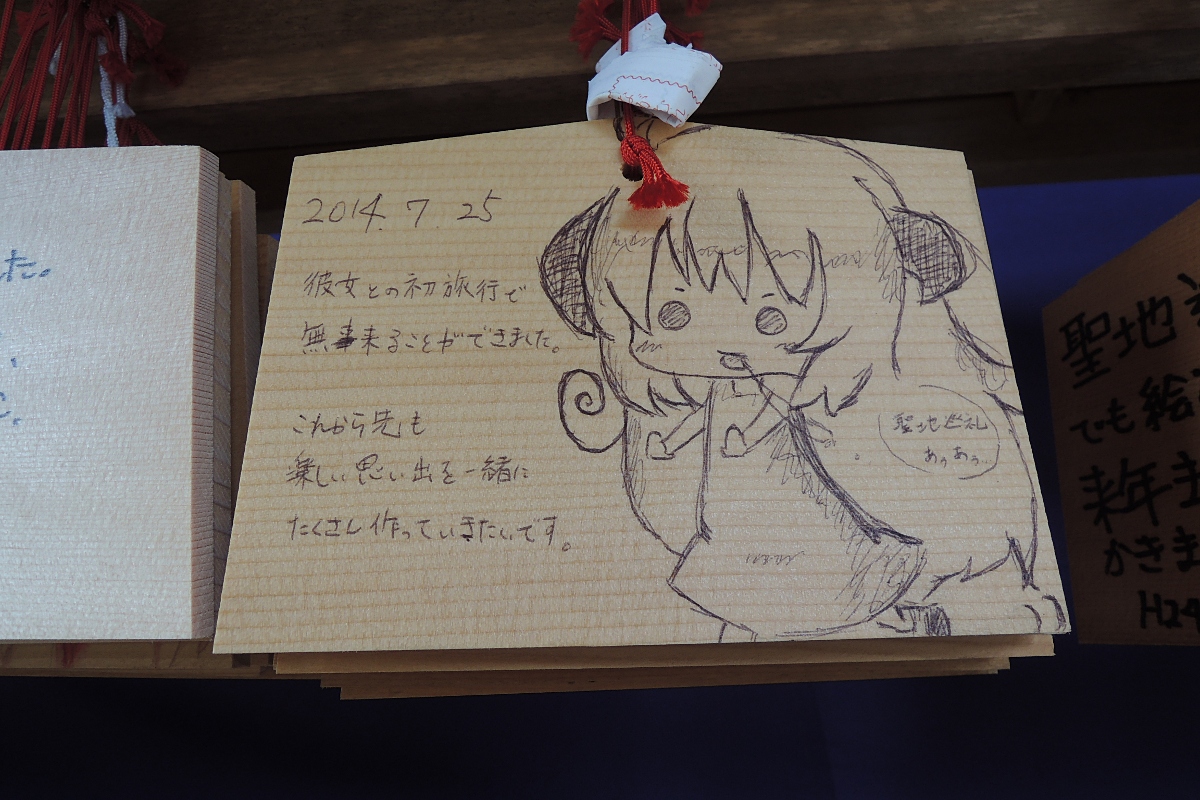 た。
2014. 7 25
彼女との初旅行で
無事来ることができました。
これから先も
楽しい思い出を一緒に
たくさん作っていきたいです。
聖地巡礼
あぅあぅ..
聖地
でも絵
来年ま
かきま
H24